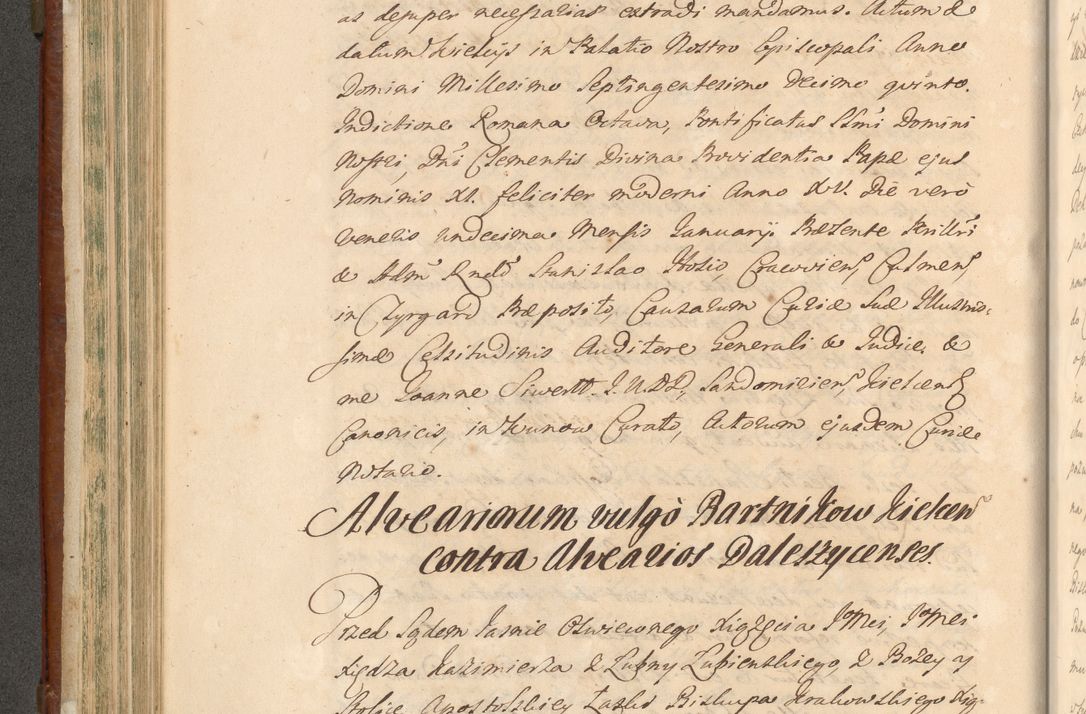 as desuper necessarias extradi mandamus. Actum &
datum Kielcijs in Palatio Nostro Episcopali Anno
Domini Millesimo Septingentesimo Decimo quinto.
Indictione Romana Octava, Pontificatus SSmi Domini
Nostri, Dni Clementis Divina Providentia Papæ ejus
Nominis XI. feliciter moderni Anno XV. Die verò
Veneris undecima Mensis Januarij Præsente Perillri
& Adm Rndo Stanislao Hosio, Cracovien, Culmen,
in Czyrgard Præposito, Causarum Curiæ Suæ Illustris-
simæ Celsitudinis Auditore Generali & Judice, &
me Joanne Siwertt. I.U.D.D, Sandomirien, Kielcen
Canonicis, in Kunow Curato, Actorum ejusdem Curiæ
Notario.
Alveariorum vulgò Bartnikow Kielcen
contra Alvearios Daleszycenses.
Przed Sądem Jasnie Oswieconego Xiążęcia JMci, JMci
Xiędza Kazimierza z Łubny Łubienskiego, z Bożey y
Stolice Apostolskiey Łaski Biskupa Krakowskiego Xią-